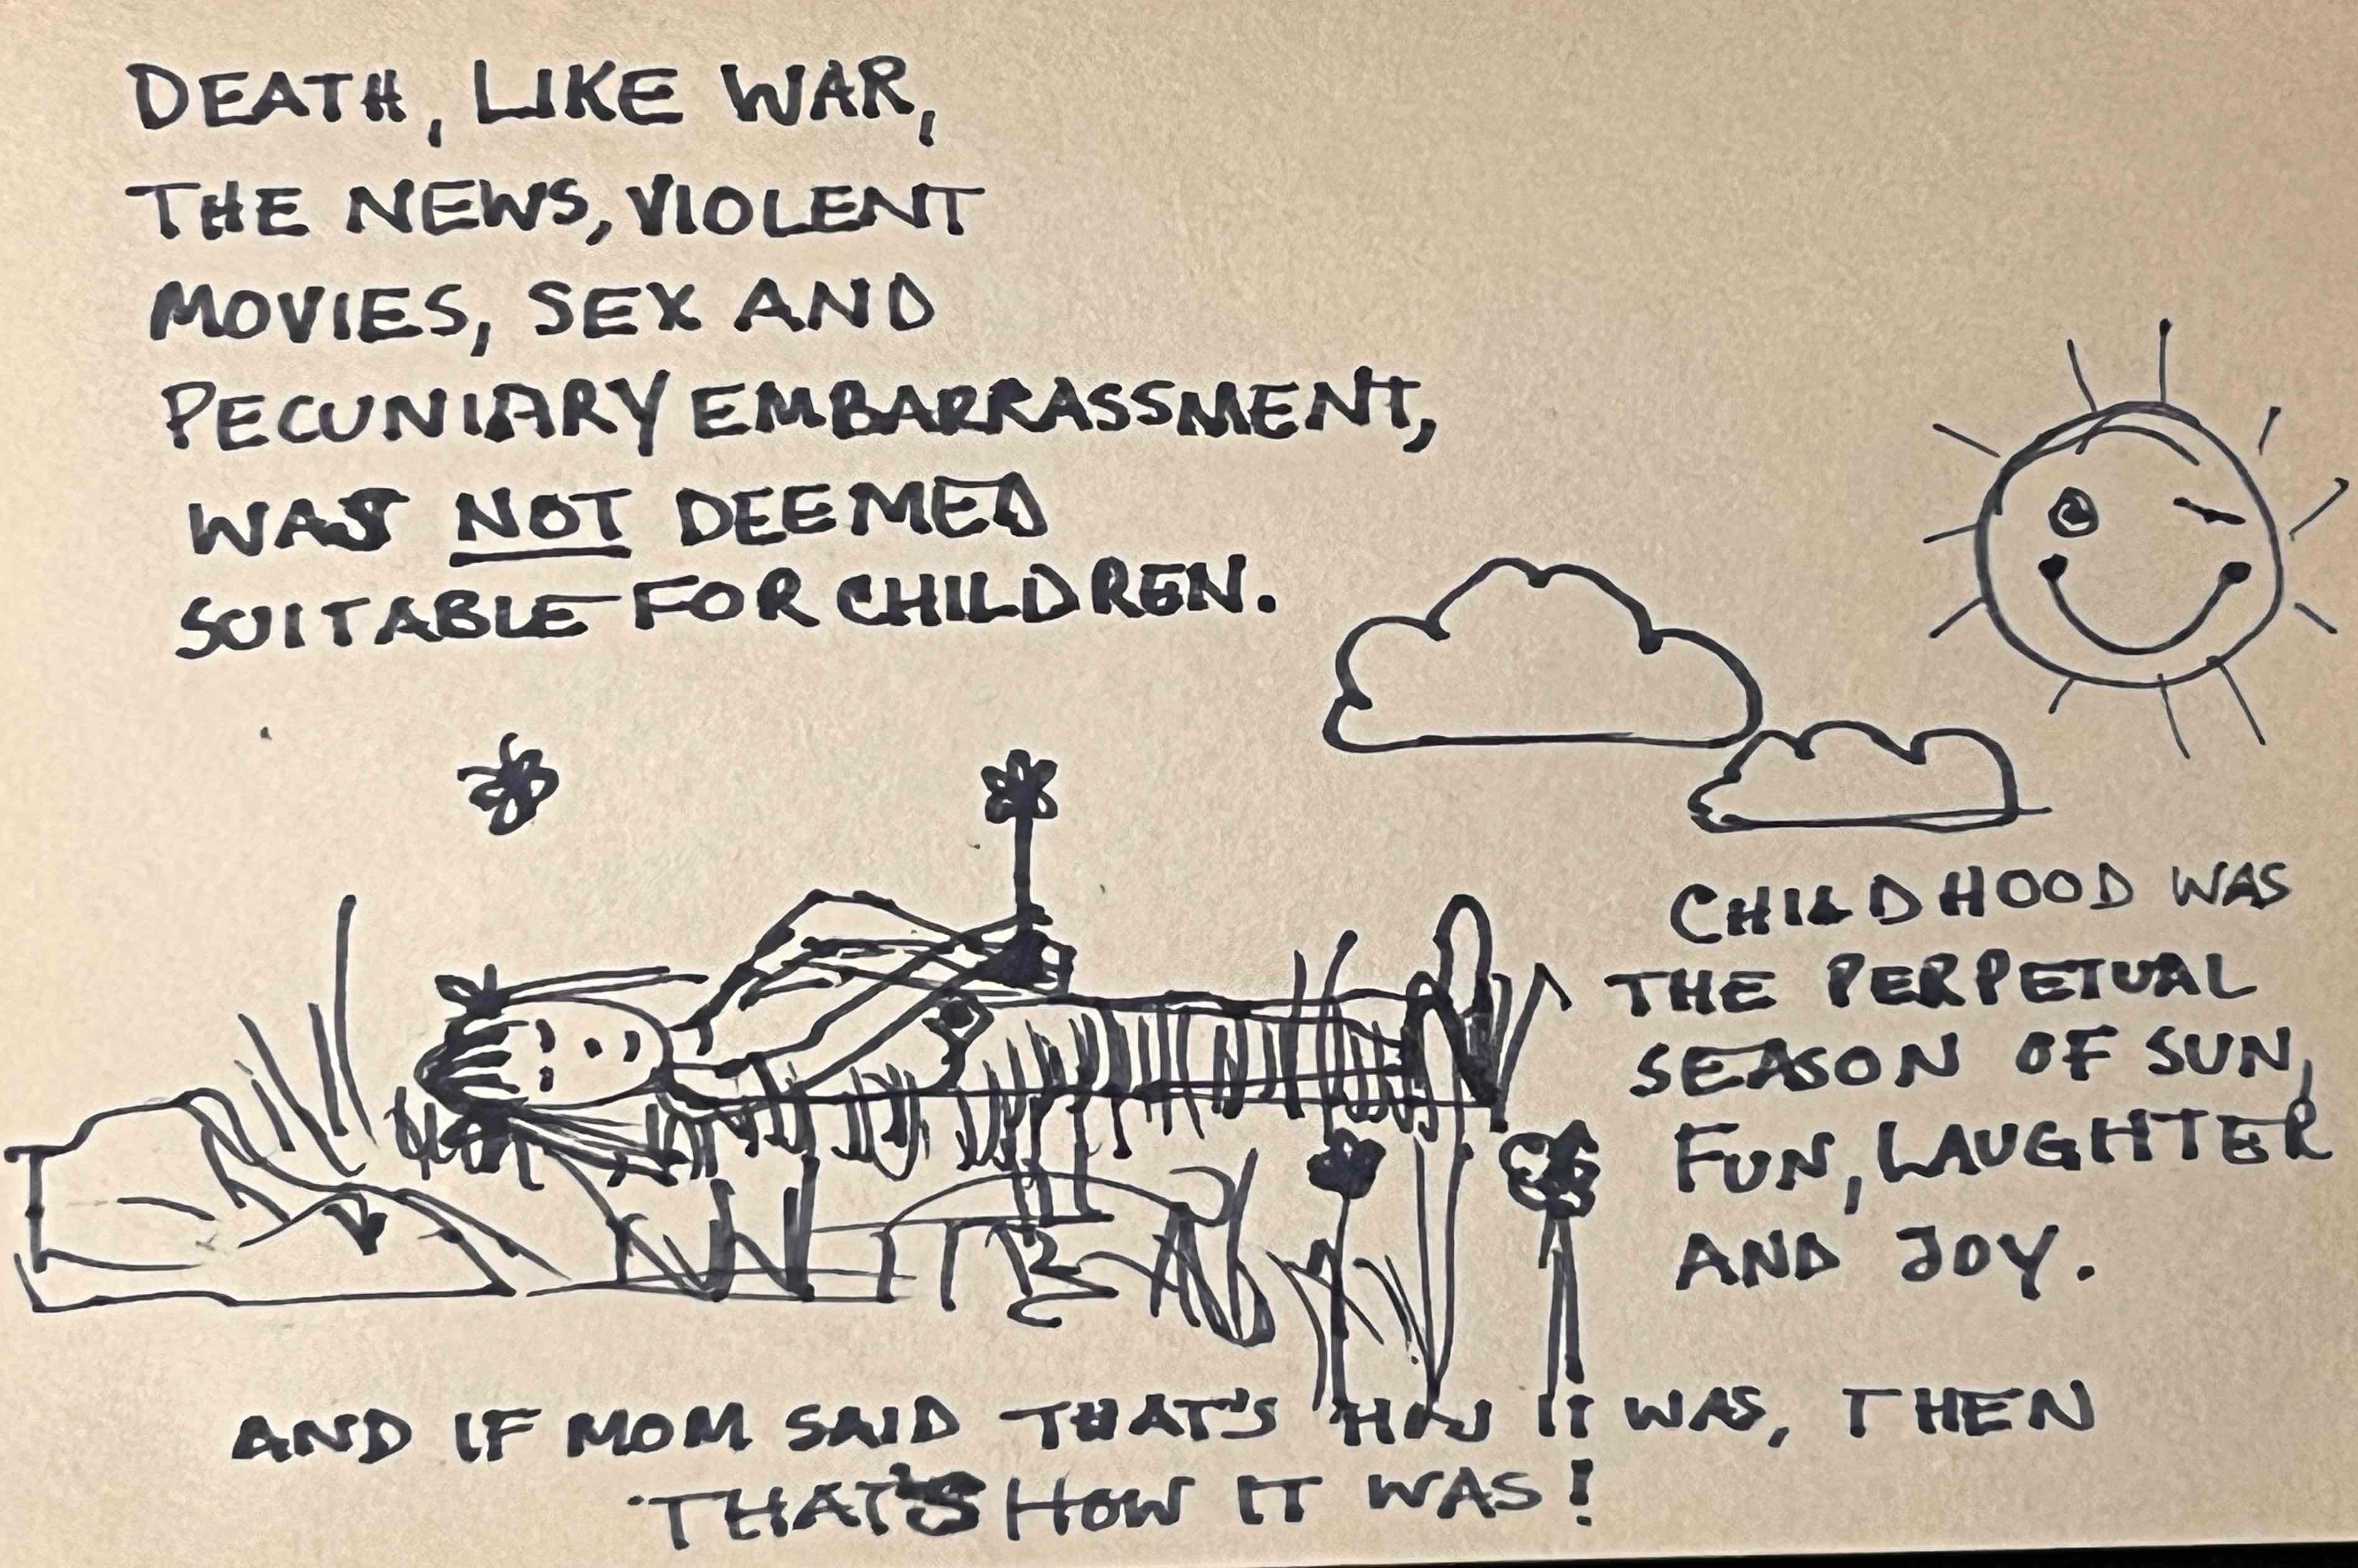 DEATH, LIKE WAR,
THE NEWS, VIOLENT
MOVIES, SEX AND
PECUNIARY EMBARRASSMENT,
WAS NOT DEEMED
SUITABLE FOR CHILDREN.
CHILDHOOD WAS
THE PERPETUAL
SEASON OF SUN,
FUN, LAUGHTER
AND JOY.
AND IF MOM SAID THAT'S HOW IT WAS, THEN
THAT'S HOW IT WAS!